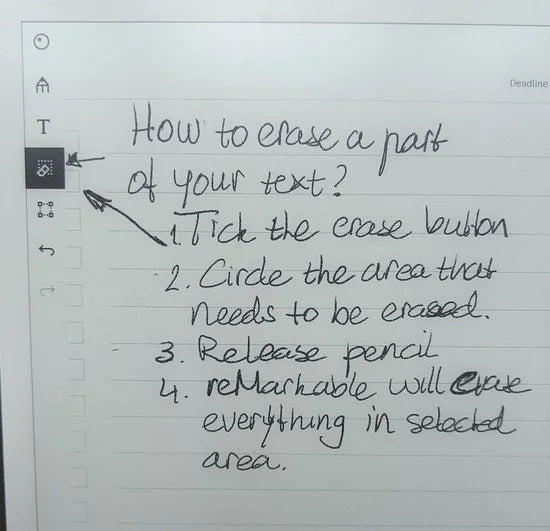 Deadline
T
How to erase a part
of your text?
1. Tick the erase button
2. Circle the area that
needs to be erased.
3. Release pencil
4. reMarkable will erase
everything in selected
area.